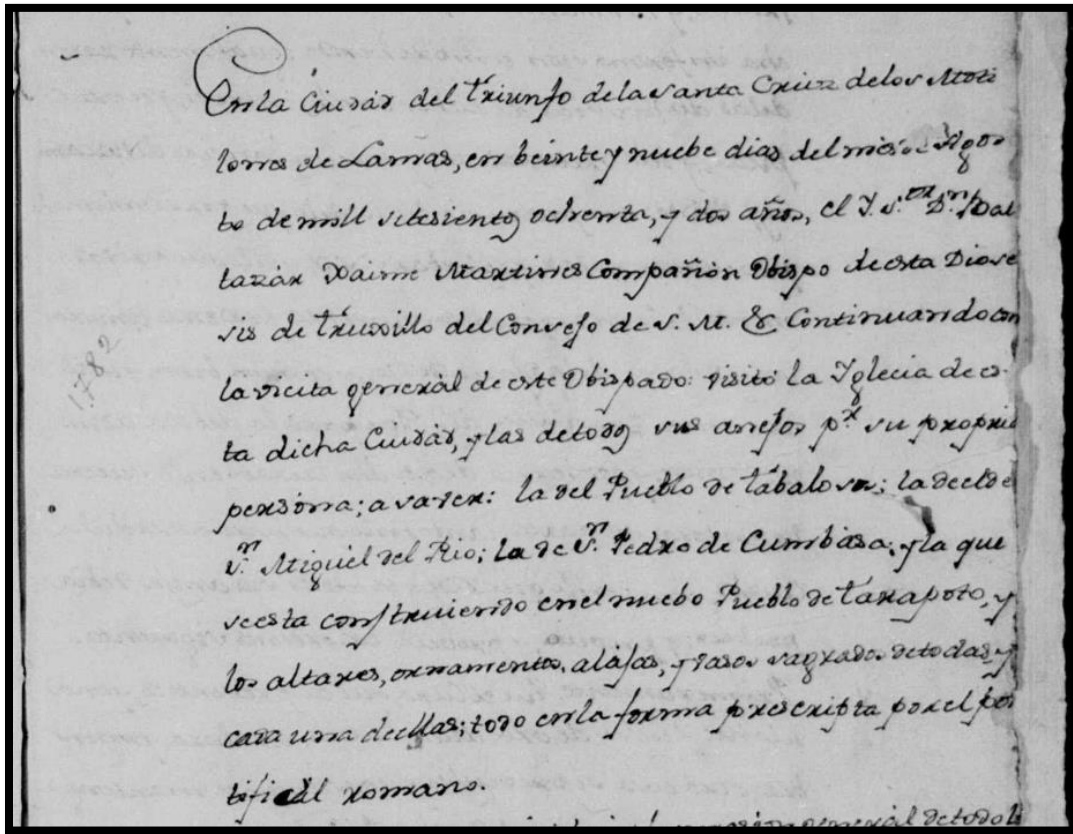 En la Ciudad del triunfo de la santa Cruz de los Moti
lones de Lamas, en beinte y nuebe dias del mes de Agos
to de mill setesientos ochenta, y dos años, el Y. S.or D.n Bal
tazár Jaime Martines Compañón Obispo de esta Diose
sis de truxillo del Consejo de S. M. &c Continuando con
la visita general de este Obispado: visitó la Yglecia de es-
ta dicha Ciudad, y las de todos sus anejos p.r su propria
persona; a saver: la del Pueblo de tabalosos; la de el de
S.n Miguel del Rio; la de S.n Pedro de Cumbasa; y la que
se esta construiendo en el nuebo Pueblo de tarapoto, y
los altares, ornamentos, alajas, y vasos sagrados de todas, y
cada una de ellas; todo en la forma prescripta por el pon
tifical romano.
general de todo
1782